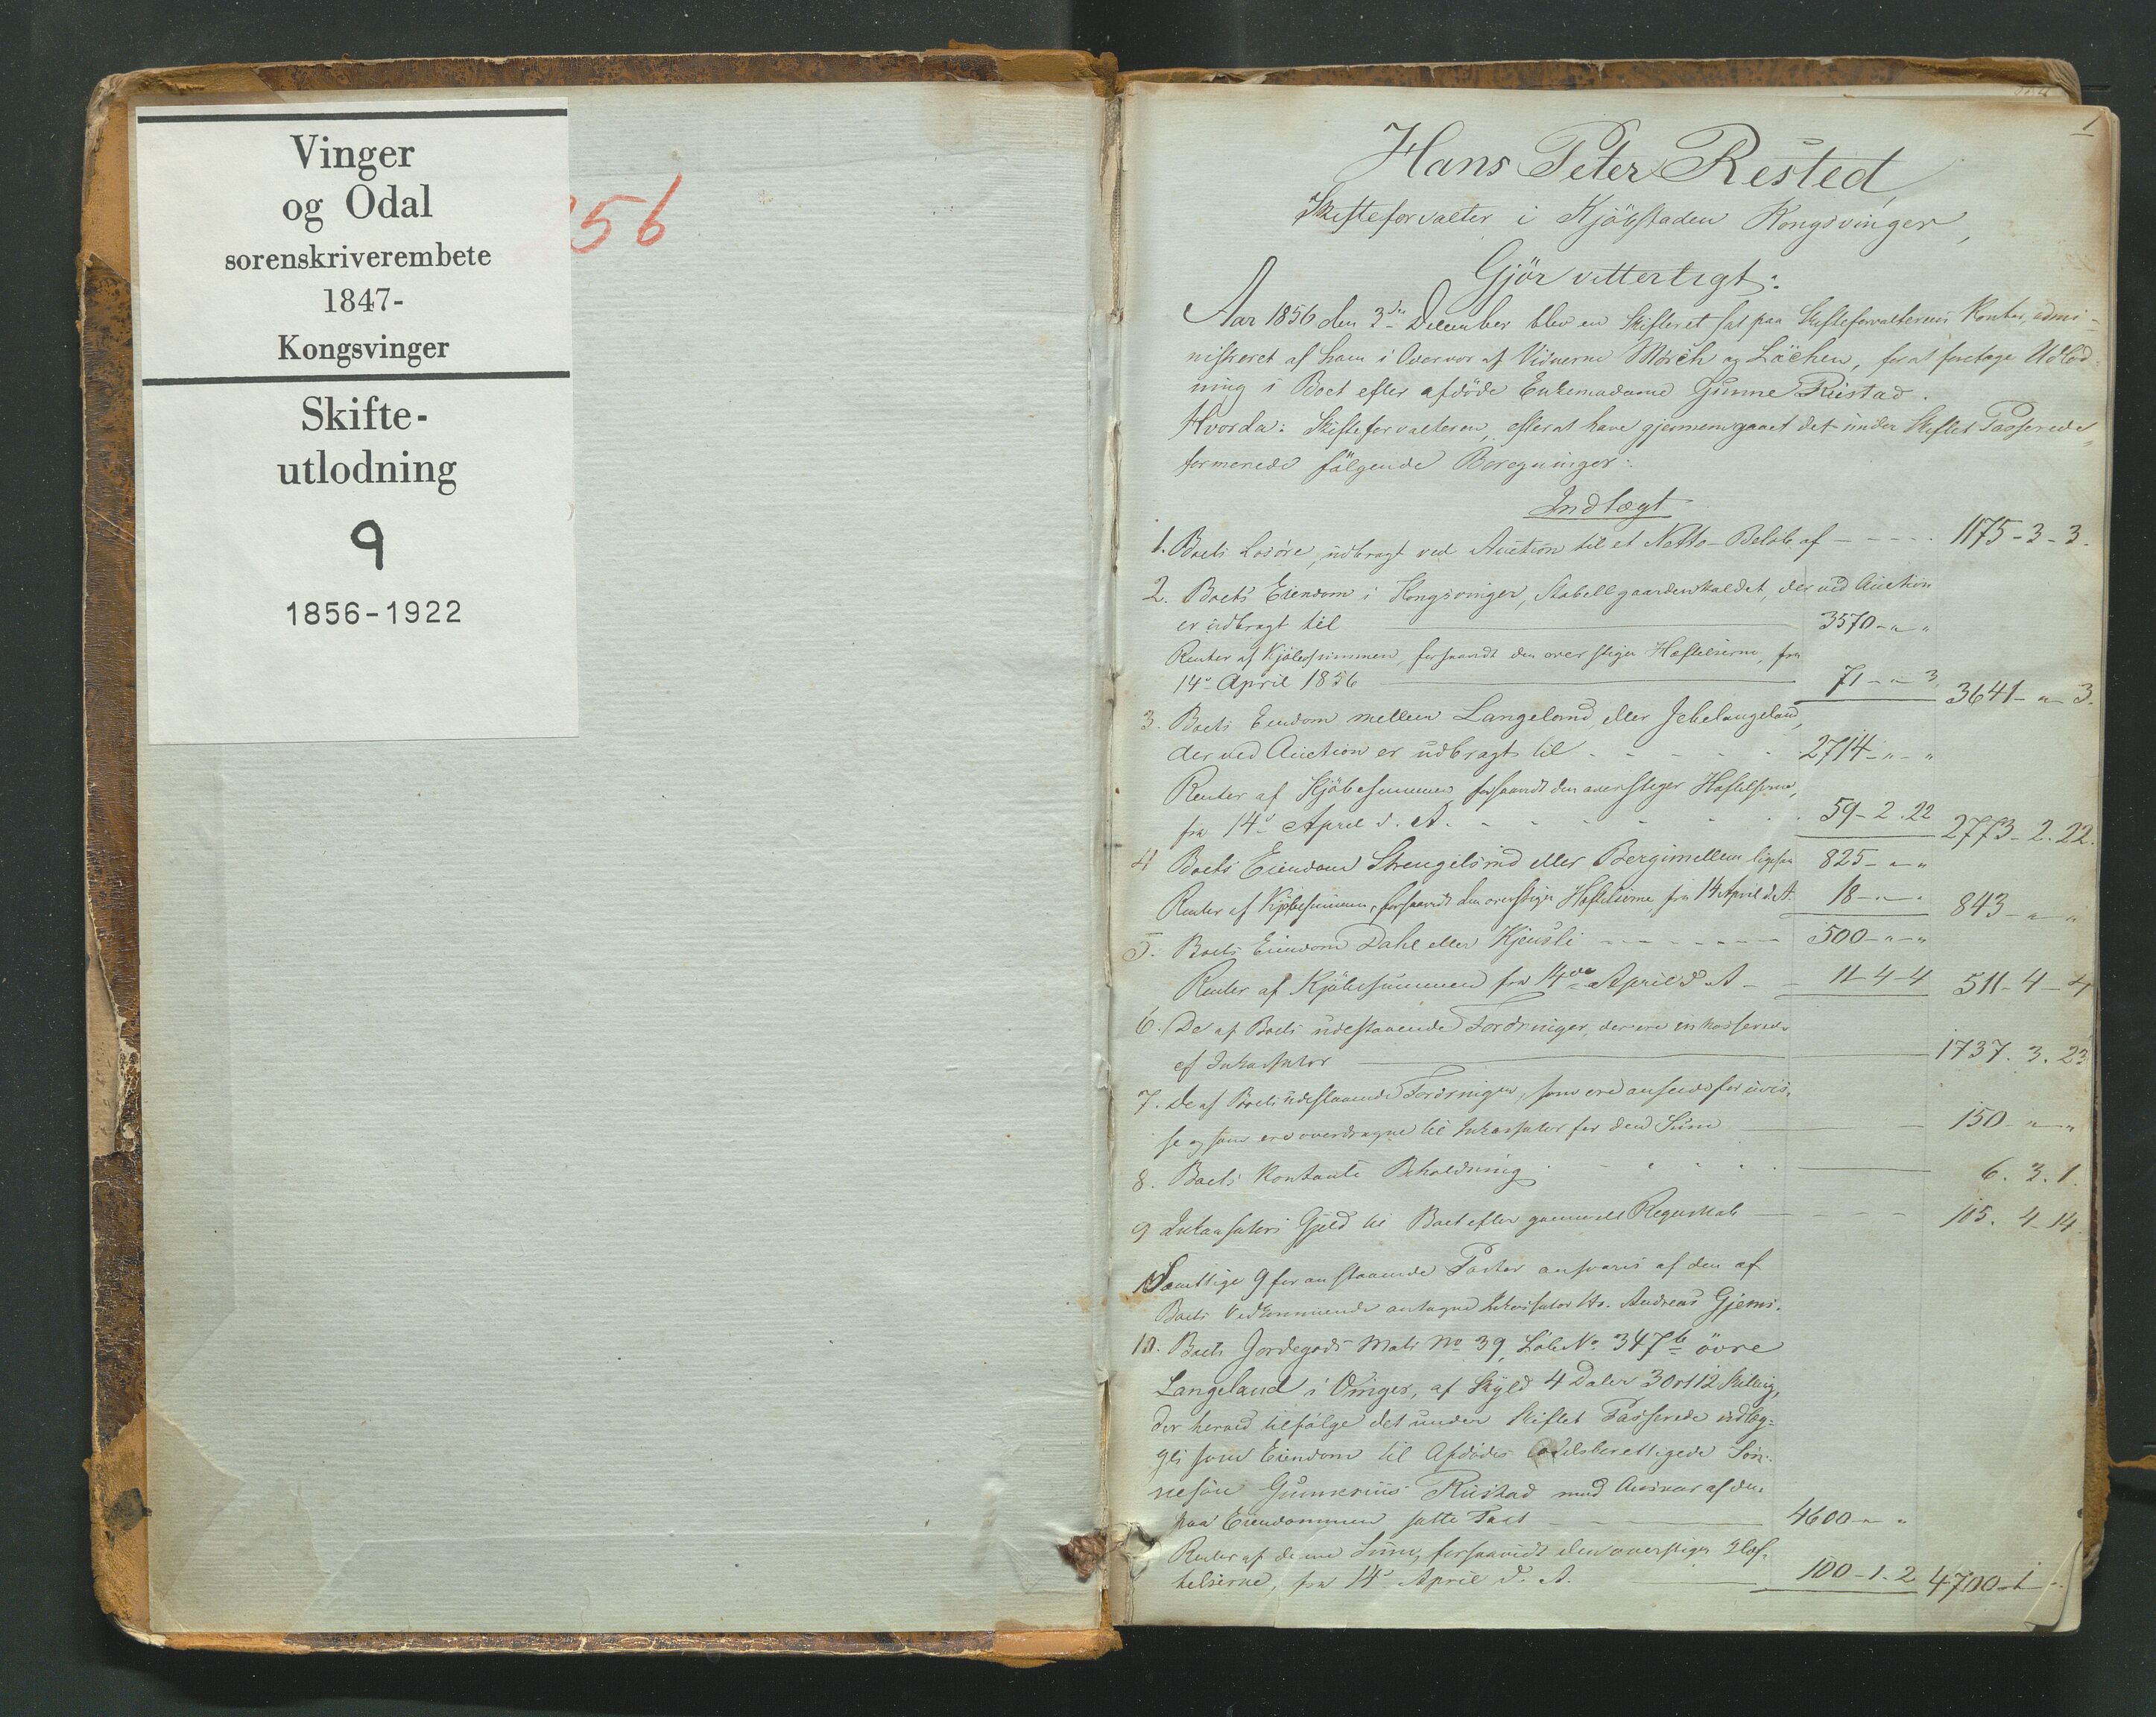 Vinger
og Odal
sorenskriverembete
1847-
Kongsvinger
Skifte-
utlodning
9
1856-1922
56
1
Hans Peter Rested,
Skifteforvalter i Kjöbstaden Kongsvinger,
Gjör vitterligt:
Aar 1856 den 3die December blev en Skifteret sat paa Skifteforvalterens Kontor, admi-
nistreret af ham i Overvær af Vidnerne Mörch og Löchen, for at foretage Udlod-
ning i Boet efter afdöde Enkemadame Gunne Rustad.
Hvorda: Skifteforvalteren, efterat have gjennemgaaet det under Skiftet Passerede,
formerede fölgende Beregninger:
Indtægt
1. Boets Lösöre, udbragt ved Auction til et Netto-Belöb af - - - - 1175-3-3.
2. Boets Eiendom i Kongsvinger, Stabellgaarden kaldet, der ved Auction
er udbragt til 3570-"-"
Renter af Kjöbesummen, forsaavidt den overstiger Hæftelserne, fra
14de April 1856 71-"-3 3641-"-3.
3. Boets Eiendom mellem Langeland eller Jebelangeland,
der ved Auction er udbragt til - - - - 2714-"-"
Renter af Kjöbesummen forsaavidt den overstiger Hæftelserne,
fra 14de April d. A. - - - - 59-2.22 2773-2.22.
4 Boets Eiendom Strengelsrud eller Bergimellem ligesaa 825-"-"
Renter af Kjöbesummen, forsaavidt den overstiger Hæftelserne fra 14 April d. A 18-"-" 843-"-"
5. Boets Eiendom Dahl eller Kjensli - - - - 500-"-"
Renter af Kjöbesummen fra 14de April d. A - - 11-4-4 511-4-4
6. De af Boets udestaaende Fordringer, der ere inkasserede
af Inkassator 1737.3.23
7. De af Boets udestaaende Fordringer, som ere ansete for uvis-
se og som ere overdragne til Inkassator for den Sum 150-"-"
8. Boets kontante Beholdning 6.3.1.
9 Inkassators Gjeld til Boet efter gammelt Regnskab - - - - 105.4-14.
Samtlige 9 foranstaaende Poster ansvares af den af
Boets Vedkommende antagne Inkassator Hr. Andreas Gjems.
10. Boets Jordegods Matr No 39, Löbe No 347b övre
Langeland i Vinger, af Skyld 4 Daler 3 Ort 12 Skilling,
der herved tilfölge det under Skiftet Passerede udlæg-
ges som Eiendom til Afdödes odelsberettigede Sön-
nesön Gunnerius Rustad med Ansvar af den
paa Eiendommen satte Taxt 4600-"-"
Renter af denne Sum, forsaavidt den overstiger Hæf-
telserne, fra 14de April d. A. 100-1.2 4700-1